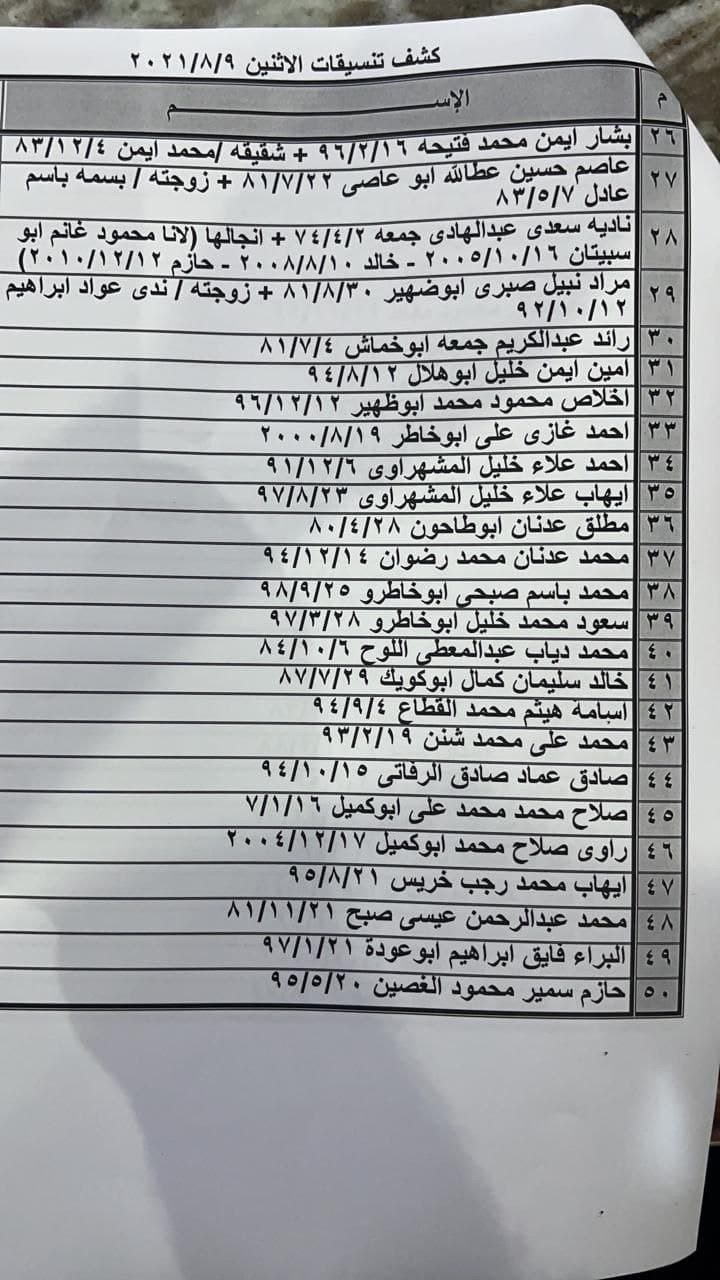 كشف تنسيقات الاثنين ٢٠٢١/٨/٩
م الإســـــم
٢٦ بشار ايمن محمد فتيحه ٩٦/٢/١٦ + شقيقه /محمد ايمن ٨٣/١٢/٤
٢٧ عاصم حسين عطالله ابو عاصى ٨١/٧/٢٢ + زوجته / بسمه باسم
عادل ٨٣/٥/٧
٢٨ ناديه سعدى عبدالهادى جمعه ٧٤/٤/٢ + انجالها (لانا محمود غانم ابو
سبيتان ٢٠٠٥/١٠/١٦ - خالد ٢٠٠٨/٨/١٠ - حازم ٢٠١٠/١٢/١٢)
٢٩ مراد نبيل صبرى ابوضهير ٨١/٨/٣٠ + زوجته / ندى عواد ابراهيم
٩٢/١٠/١٢
٣٠ رائد عبدالكريم جمعه ابوخماش ٨١/٧/٤
٣١ امين ايمن خليل ابوهلال ٩٤/٨/١٢
٣٢ اخلاص محمود محمد ابوظهير ٩٦/١٢/١٢
٣٣ احمد غازى على ابوخاطر ٢٠٠٠/٨/١٩
٣٤ احمد علاء خليل المشهراوى ٩١/١٢/٦
٣٥ ايهاب علاء خليل المشهراوى ٩٧/٨/٢٣
٣٦ مطلق عدنان ابوطاحون ٨٠/٤/٢٨
٣٧ محمد عدنان محمد رضوان ٩٤/١٢/١٤
٣٨ محمد باسم صبحى ابوخاطرو ٩٨/٩/٢٥
٣٩ سعود محمد خليل ابوخاطرو ٩٧/٣/٢٨
٤٠ محمد دياب عبدالمعطى اللوح ٨٤/١٠/٦
٤١ خالد سليمان كمال ابوكويك ٨٧/٧/٢٩
٤٢ اسامة هيثم محمد القطاع ٩٤/٩/٤
٤٣ محمد على محمد شنن ٩٣/٢/١٩
٤٤ صادق عماد صادق الرفاتى ٩٤/١٠/١٥
٤٥ صلاح محمد محمد على ابوكميل ٧/١/١٦
٤٦ راوى صلاح محمد ابوكميل ٢٠٠٤/١٢/١٧
٤٧ ايهاب محمد رجب خريس ٩٥/٨/٢١
٤٨ محمد عبدالرحمن عيسى صبح ٨١/١١/٢١
٤٩ البراء فايق ابراهيم ابوعودة ٩٧/١/٢١
٥٠ حازم سمير محمود الغصين ٩٥/٥/٢٠